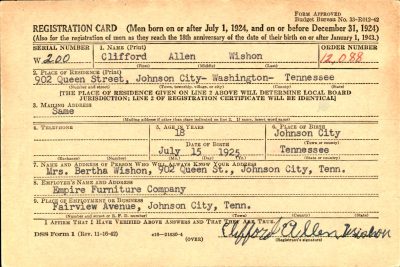 FORM APPROVED
Budget Bureau No. 33-R012-42
REGISTRATION CARD (Men born on or after July 1, 1924, and on or before December 31, 1924)
(Also for the registration of men as they reach the 18th anniversary of the date of their birth on or after January 1, 1925.)
SERIAL NUMBER 1. NAME (Print) ORDER NUMBER
W 200 Clifford Allen Wishon 12,088
(First) (Middle) (Last)
2. PLACE OF RESIDENCE (Print)
902 Queen Street, Johnson City- Washington- Tennessee
(Number and street) (Town, township, village, or city) (County) (State)
[THE PLACE OF RESIDENCE GIVEN ON LINE 2 ABOVE WILL DETERMINE LOCAL BOARD
JURISDICTION; LINE 2 OF REGISTRATION CERTIFICATE WILL BE IDENTICAL]
3. MAILING ADDRESS
Same
[Mailing address if other than place indicated on line 2. If same, insert word same]
4. TELEPHONE 5. AGE IN YEARS 6. PLACE OF BIRTH
18 Johnson City
DATE OF BIRTH (Town or county)
July 15 1925 Tennessee
(Exchange) (Number) (Mo.) (Day) (Yr.) (State or country)
7. NAME AND ADDRESS OF PERSON WHO WILL ALWAYS KNOW YOUR ADDRESS
Mrs. Bertha Wishon, 902 Queen St., Johnson City, Tenn.
8. EMPLOYER'S NAME AND ADDRESS
Empire Furniture Company
9. PLACE OF EMPLOYMENT OR BUSINESS
Fairview Avenue, Johnson City, Tenn.
(Number and street or R. F. D. number) (Town) (County) (State)
I AFFIRM THAT I HAVE VERIFIED ABOVE ANSWERS AND THAT THEY ARE TRUE.
DSS Form 1 (Rev. 11-16-42) (OVER) Clifford Allen Wishon
(Registrant's signature)